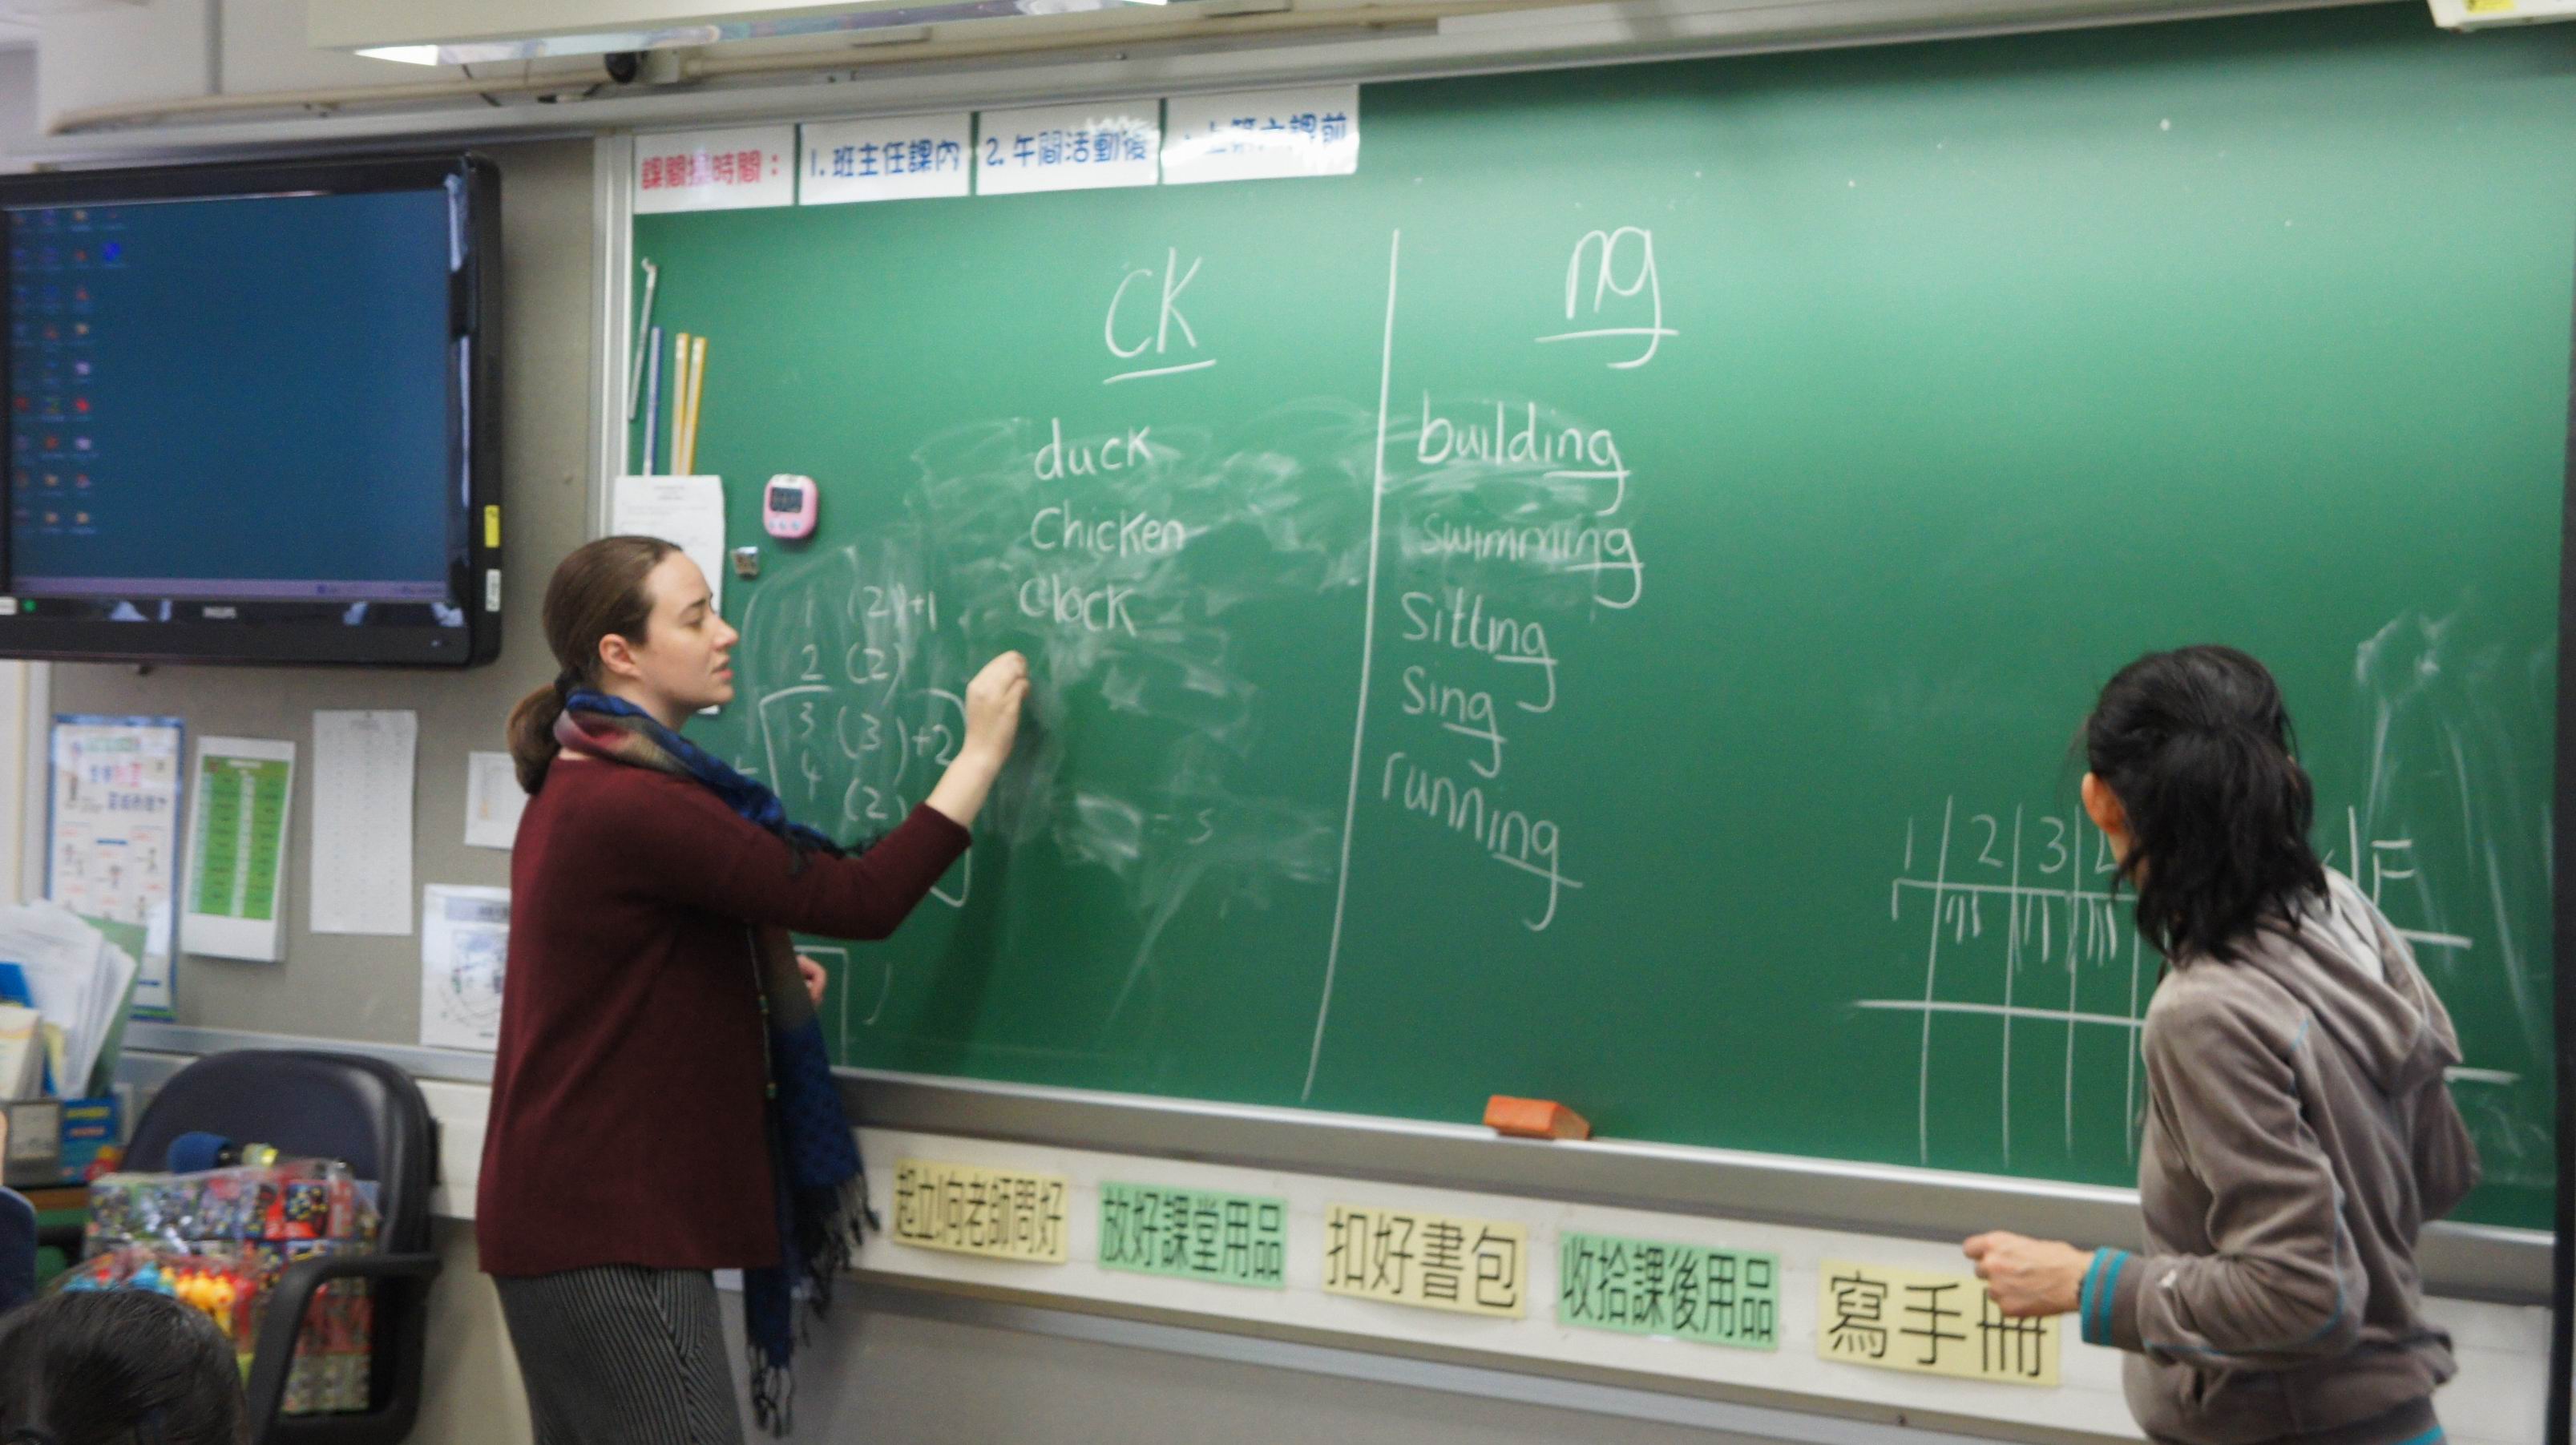 課間操時間：
1. 班主任課內
2. 午間活動後
上第六課前
ck
duck
Chicken
Clock
ng
building
swimming
Sitting
Sing
running
1 (2)+1
2 (2)
3 (3)+2
4 (2)
= 5
1 2 3
F
PHILIPS
起立向老師問好
放好課堂用品
扣好書包
收拾課後用品
寫手冊